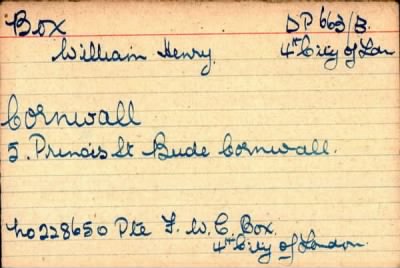 Box DP 663/B.
William Henry. 4th City of Lon
Cornwall
5. Princis St Bude Cornwall.
No 228650 Pte F. W. C. Box.
4th City of London.